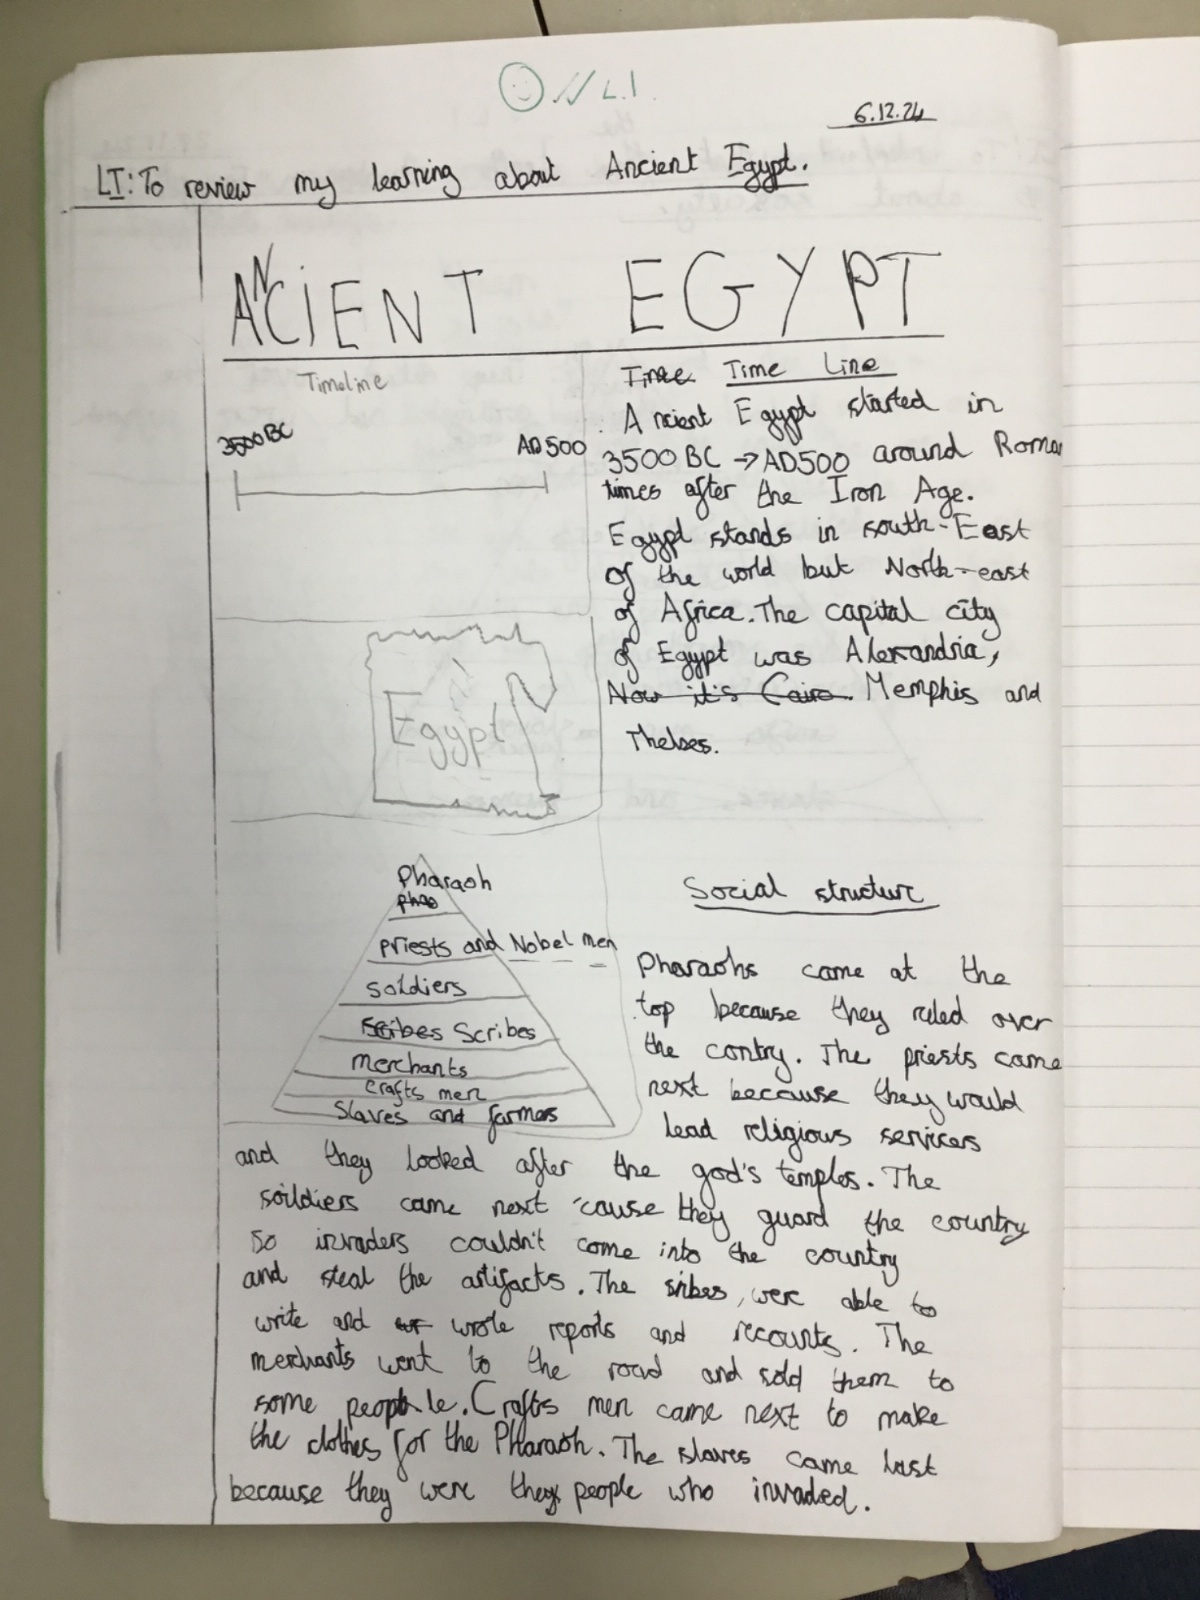 L.I.
6.12.24
LI: To review my learning about Ancient Egypt.
ANCIENT EGYPT
Timeline
3500 BC AD 500
Time Line
Ancient Egypt started in
3500 BC → AD500 around Roman
times after the Iron Age.
Egypt stands in south-East
of the world but North-east
of Africa. The capital city
of Egypt was Alexandria,
Now it's Cairo. Memphis and
Thebes.
Egypt
Pharaoh
phao
priests and Nobel men
soldiers
Scribes
merchants
crafts men
Slaves and farmers
Social structure
Pharaohs came at the
top because they ruled over
the contry. The priests came
next because they would
lead religious services
and they looked after the god's temples. The
soildiers came next 'cause they guard the country
so invaders couldn't come into the country
and steal the artifacts. The sribes, were able to
write and wrote reports and recounts. The
merchants went to the road and sold them to
some people. Crafts men came next to make
the clothes for the Pharaoh. The slaves came last
because they were they people who invaded.